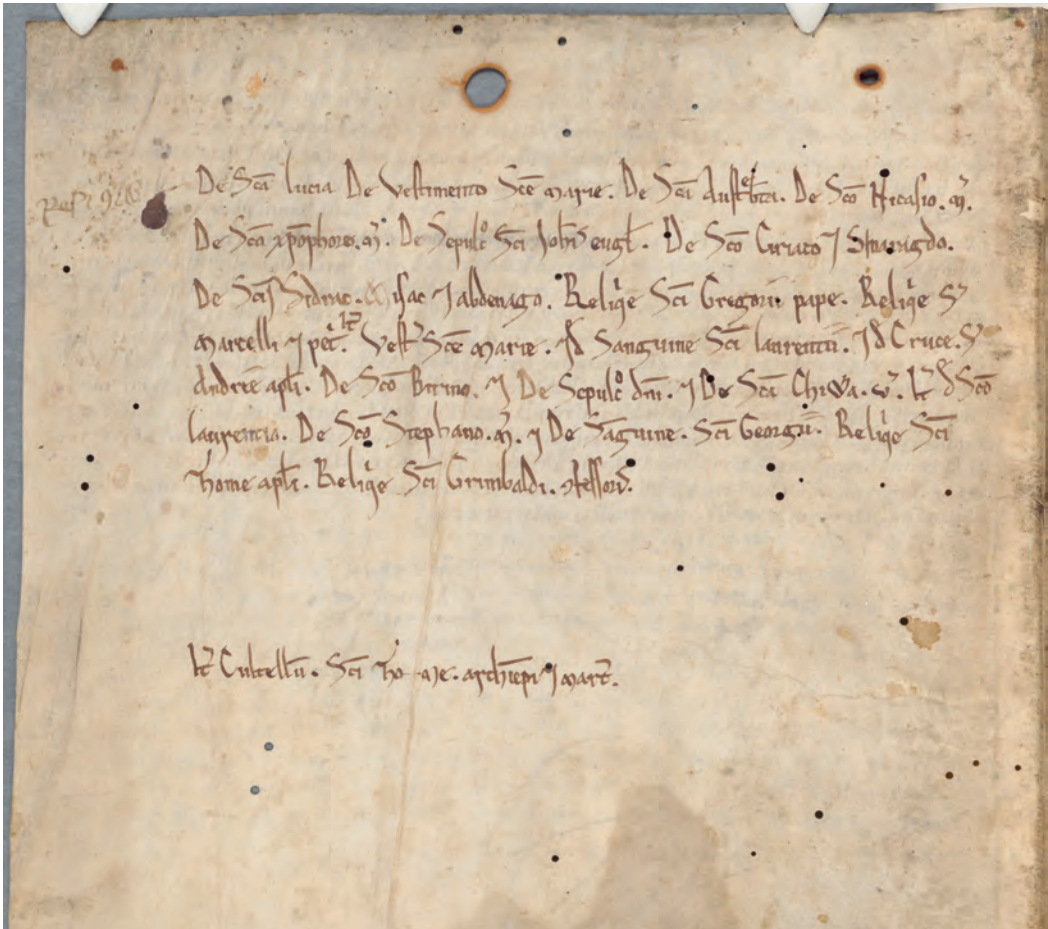 De Sc̄a lucia De Vestimento Sc̄e marie. De Sc̄a Austebta. De Sc̄o Nicasio. m̄.
De Sc̄o xp̄ophoro. m̄. De Sepulc̊ Sc̄i Joh̄is eugl̄. De Sc̄o Ciriaco ⁊ Smaragdo.
De Sc̄is Sidrac. & isac ⁊ abdenago. Reliq̄e Sc̄i Gregorii pape. Reliq̄e S̄
marcelli ⁊ pet̄. It̄ Vest̄ Sc̄e marie. ⁊ d̄ Sanguine Sc̄i laurentii. ⁊ d̄ Cruce. S̄
Andree apl̄i. De Sc̄o Birino. ⁊ De Sepulc̊ dn̄i. ⁊ De Sc̄a Chiƿa. v̄. It̄ d̄ Sc̄o
laurencio. De Sc̄o Stephano. m̄. ⁊ De Sāguine. Sc̄i Georgii. Reliq̄e Sc̄i
Thome apl̄i. Reliq̄e Sc̄i Grimbaldi. ꝯfessor̄.
It̄ Cultellū. Sc̄i Tho me. archiep̄i ⁊ mart̄.